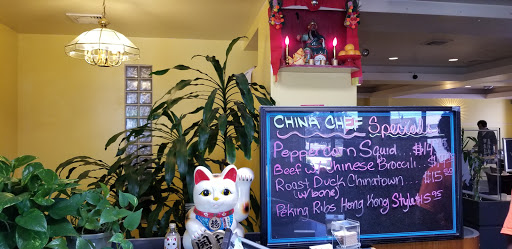 CHINA CHEF Special
Peppercorn Squid....$14
Beef w/ Chinese Broccili..$14
Roast Duck Chinatown....$15.95
w/(bone)
Peking Ribs Hong Kong Style $15.95